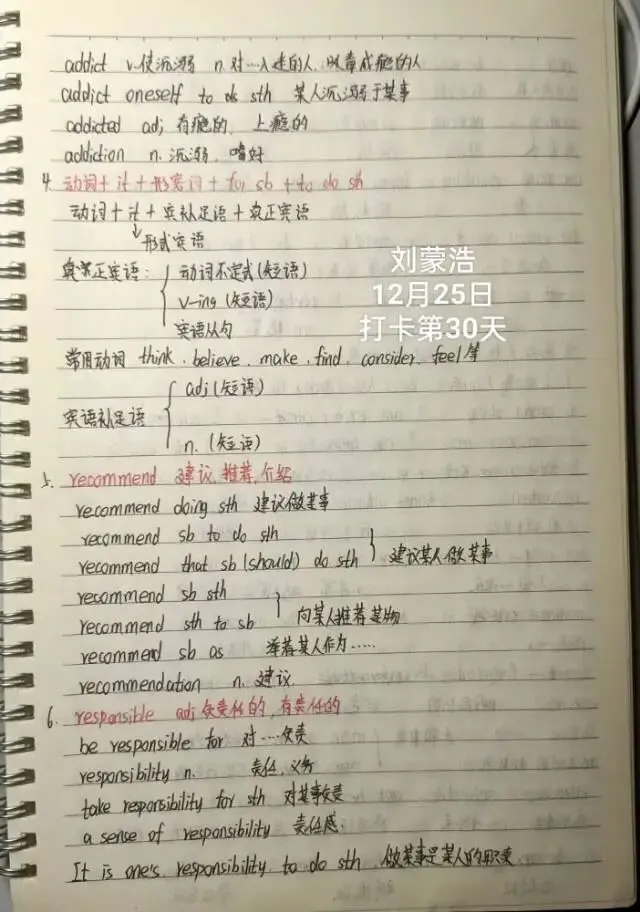 addict v.使沉溺 n.对…入迷的人,吸毒成瘾的人
addict oneself to do sth 某人沉溺于某事
addicted adj 有瘾的, 上瘾的
addiction n. 沉溺, 嗜好
4. 动词+it+形容词+for sb+to do sth
动词+it+宾补足语+真正宾语
形式宾语
真正宾语: 动词不定式(短语)
v-ing (短语)
宾语从句
常用动词 think、believe、make、find、consider、feel等
宾语补足语 adj(短语)
n.(短语)
5. recommend 建议,推荐,介绍
recommend doing sth 建议做某事
recommend sb to do sth
recommend that sb (should) do sth 建议某人做某事
recommend sb sth
recommend sth to sb 向某人推荐某物
recommend sb as 推荐某人作为……
recommendation n. 建议
6. responsible adj 负责任的,有责任的
be responsible for 对…负责
responsibility n. 责任,义务
take responsibility for sth 对某事负责
a sense of responsibility 责任感.
It is one's responsibility to do sth 做某事是某人的职责
刘蒙浩
12月25日
打卡第30天